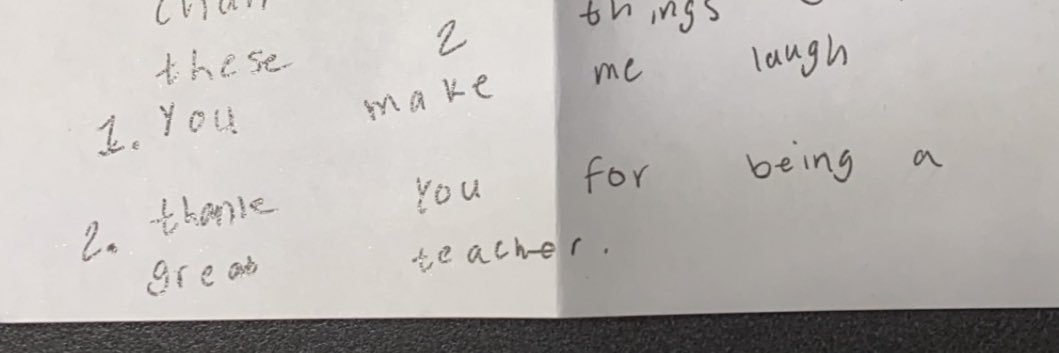 things
these 2
1. You make me laugh
2. thank You for being a
great teacher.